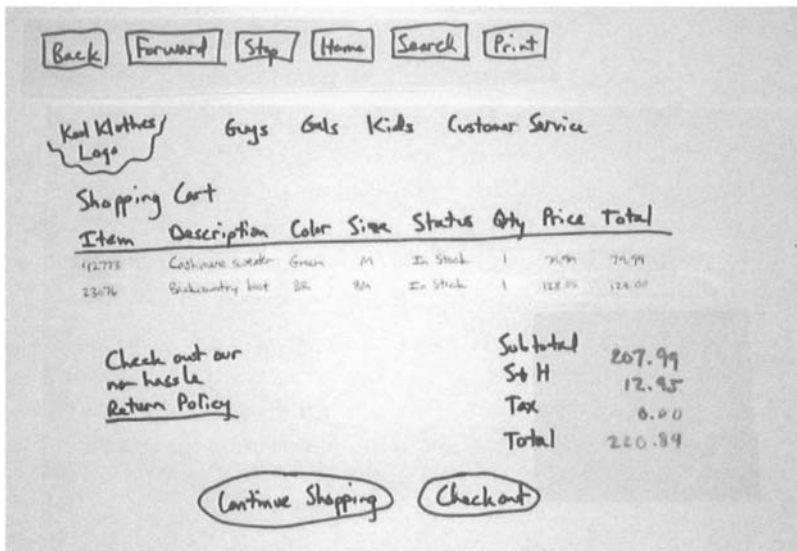 Back Forward Stop Home Search Print
Kool Klothes Guys Gals Kids Customer Service
Logo
Shopping Cart
Item Description Color Size Status Qty Price Total
Cashmere sweater Green M In Stock 1 79.99
Backcountry boot BR 8M In Stock 1 128.00 128.00
Check out our
no hassle
Return Policy
Subtotal 207.99
S+H 12.95
Tax 0.00
Total
Continue Shopping Checkout